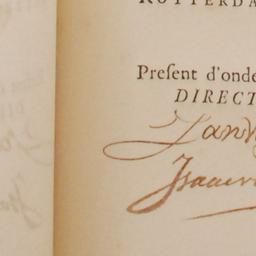 ROTTERDA
Present d'onde
DIRECT
Jan v
Isaac v